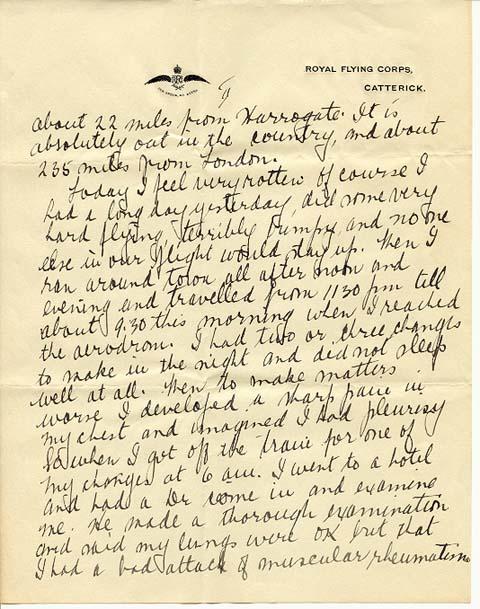 ROYAL FLYING CORPS,
CATTERICK.
about 22 miles from Harrogate. It is
absolutely out in the country, and about
235 miles from London.
Today I feel very rotten of course I
had a long day yesterday, did some very
hard flying, terribly bumpy, and no one
else in our flight would stay up. Then I
ran around town all after noon and
evening and travelled from 11 30 pm till
about 9:30 this morning when I reached
the aerodrom. I had two or three changes
to make in the night and did not sleep
well at all. Then to make matters
worse I developed a sharp pain in
my chest and imagined I had pleurisy
so when I got off the train for one of
my changes at 6 am. I went to a hotel
and had a Dr come in and examine
me. He made a thorough examination
and said my lungs were OK but that
I had a bad attack of muscular rheumatism